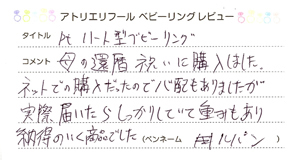 アトリエリフール ベビーリングレビュー
タイトル Pt ハート型ベビーリング
コメント 母の還暦祝いに購入しました。
ネットでの購入だったので心配もありましたが
実際届いたらしっかりしていて重みもあり
納得のいく商品でした (ペンネーム ルパン)